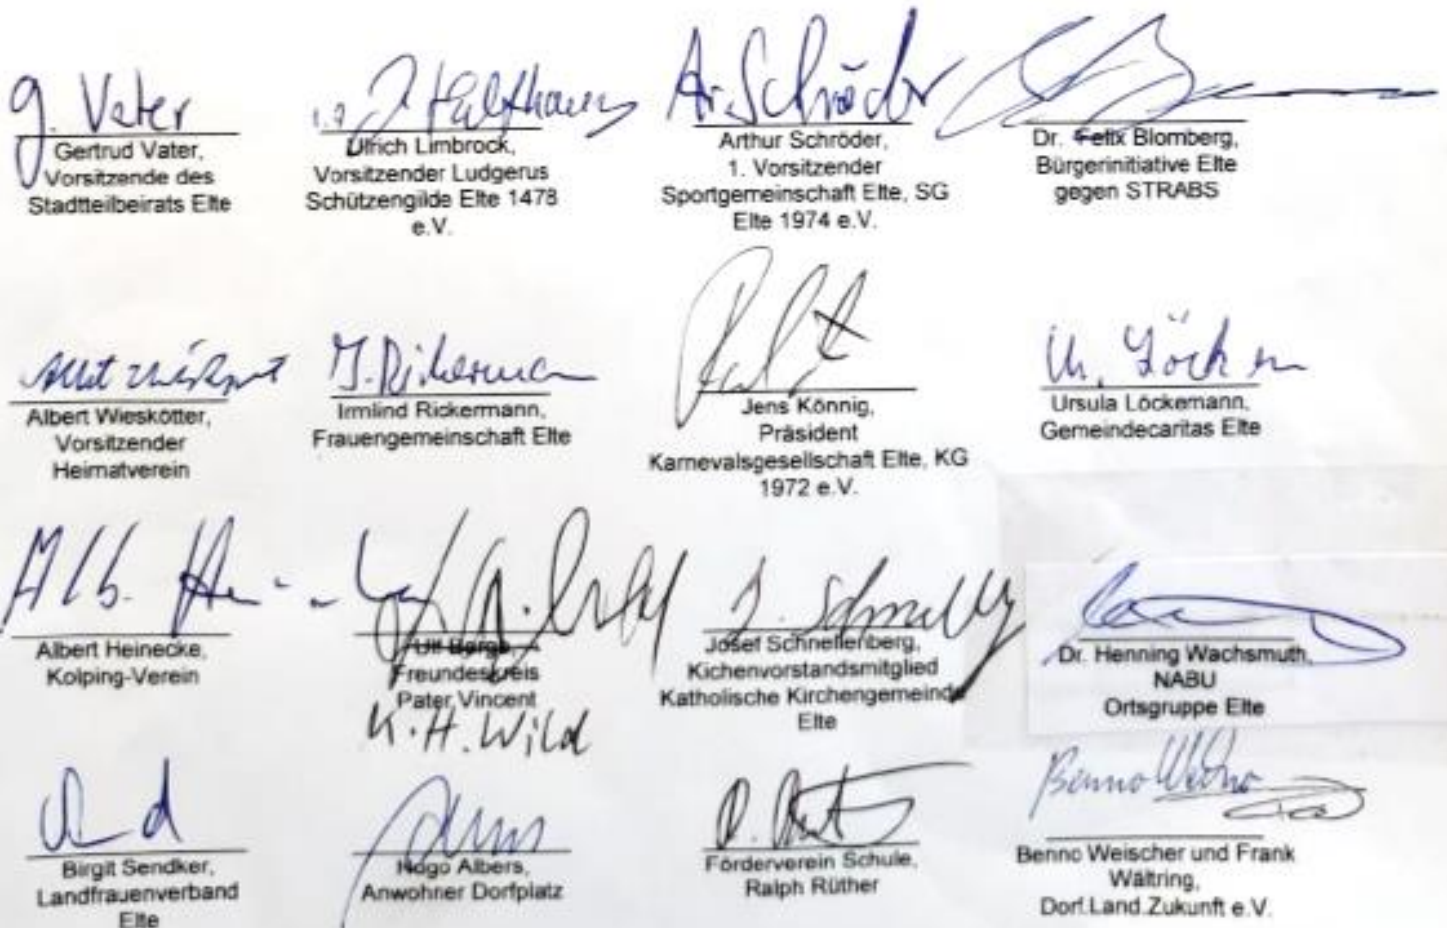 G. Vater
Gertrud Vater,
Vorsitzende des
Stadtteilbeirats Elte
Ulrich Limbrock,
Vorsitzender Ludgerus
Schützengilde Elte 1478
e.V.
Ar. Schröder
Arthur Schröder,
1. Vorsitzender
Sportgemeinschaft Elte, SG
Elte 1974 e.V.
Dr. Felix Blomberg,
Bürgerinitiative Elte
gegen STRABS
Albert Wieskötter,
Vorsitzender
Heimatverein
Irmlind Rickermann,
Frauengemeinschaft Elte
Jens Könnig,
Präsident
Karnevalsgesellschaft Elte, KG
1972 e.V.
Ursula Löckemann,
Gemeindecaritas Elte
Alb.
Albert Heinecke,
Kolping-Verein
Freundeskreis
Pater Vincent
K.H. Wild
Josef Schnellenberg,
Kichenvorstandsmitglied
Katholische Kirchengemeinde
Elte
Dr. Henning Wachsmuth,
NABU
Ortsgruppe Elte
Birgit Sendker,
Landfrauenverband
Elte
Hugo Albers,
Anwohner Dorfplatz
Förderverein Schule,
Ralph Rüther
Benno
Benno Weischer und Frank
Wältring,
Dorf.Land.Zukunft e.V.